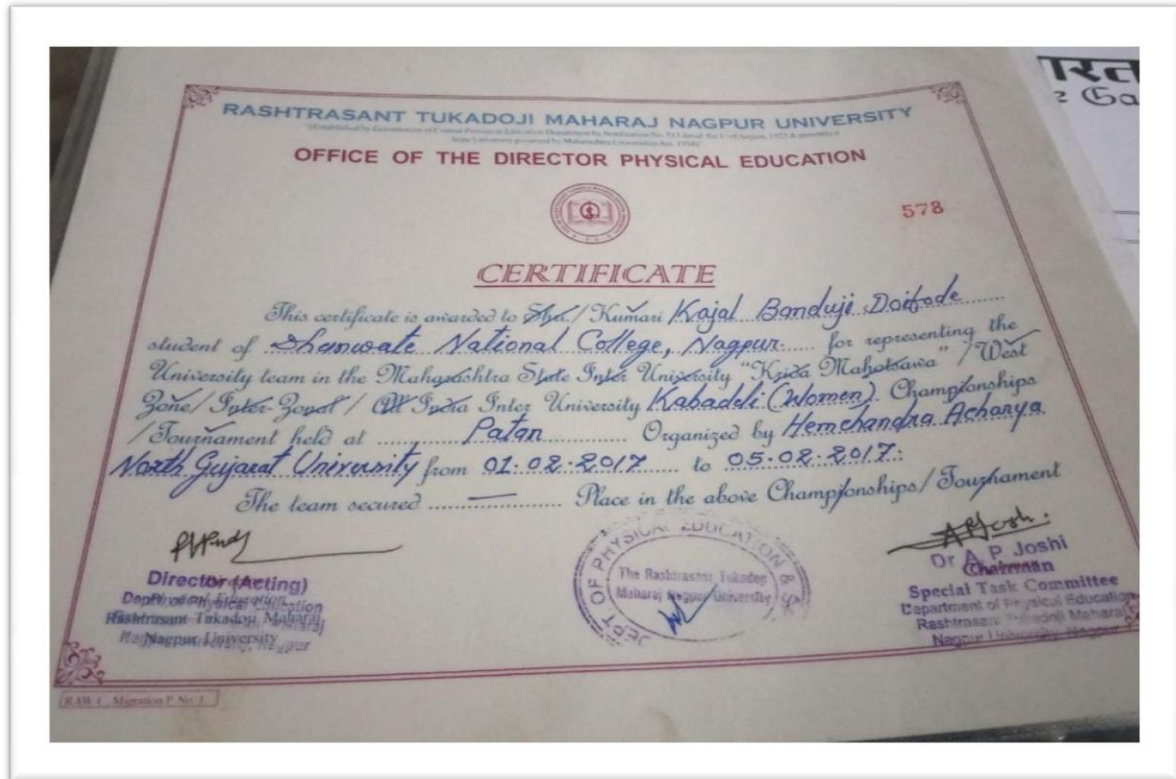 RASHTRASANT TUKADOJI MAHARAJ NAGPUR UNIVERSITY
OFFICE OF THE DIRECTOR PHYSICAL EDUCATION
578
CERTIFICATE
This certificate is awarded to Shri./Kumari Kajal Banduji Doifode
student of Dhanwate National College, Nagpur. for representing the
University team in the Maharashtra State Inter University "Krida Mahotsawa" / West
Zone/ Inter-Zonal / All India Inter University Kabaddi (Women). Championships
/Tournament held at Patan Organized by Hemchandra Acharya
North Gujarat University from 01.02.2017 to 05.02.2017.
The team secured — Place in the above Championships/ Tournament
Director (Acting)
Rashtrasant Tukadoji Maharaj
Nagpur University
DEPT. OF PHYSICAL EDUCATION &
The Rashtrasant Tukadoji
Maharaj Nagpur University
Dr A. P. Joshi
Chairman
Special Task Committee
Department of Physical Education
Rashtrasant Tukadoji Maharaj
Nagpur University, Nagpur